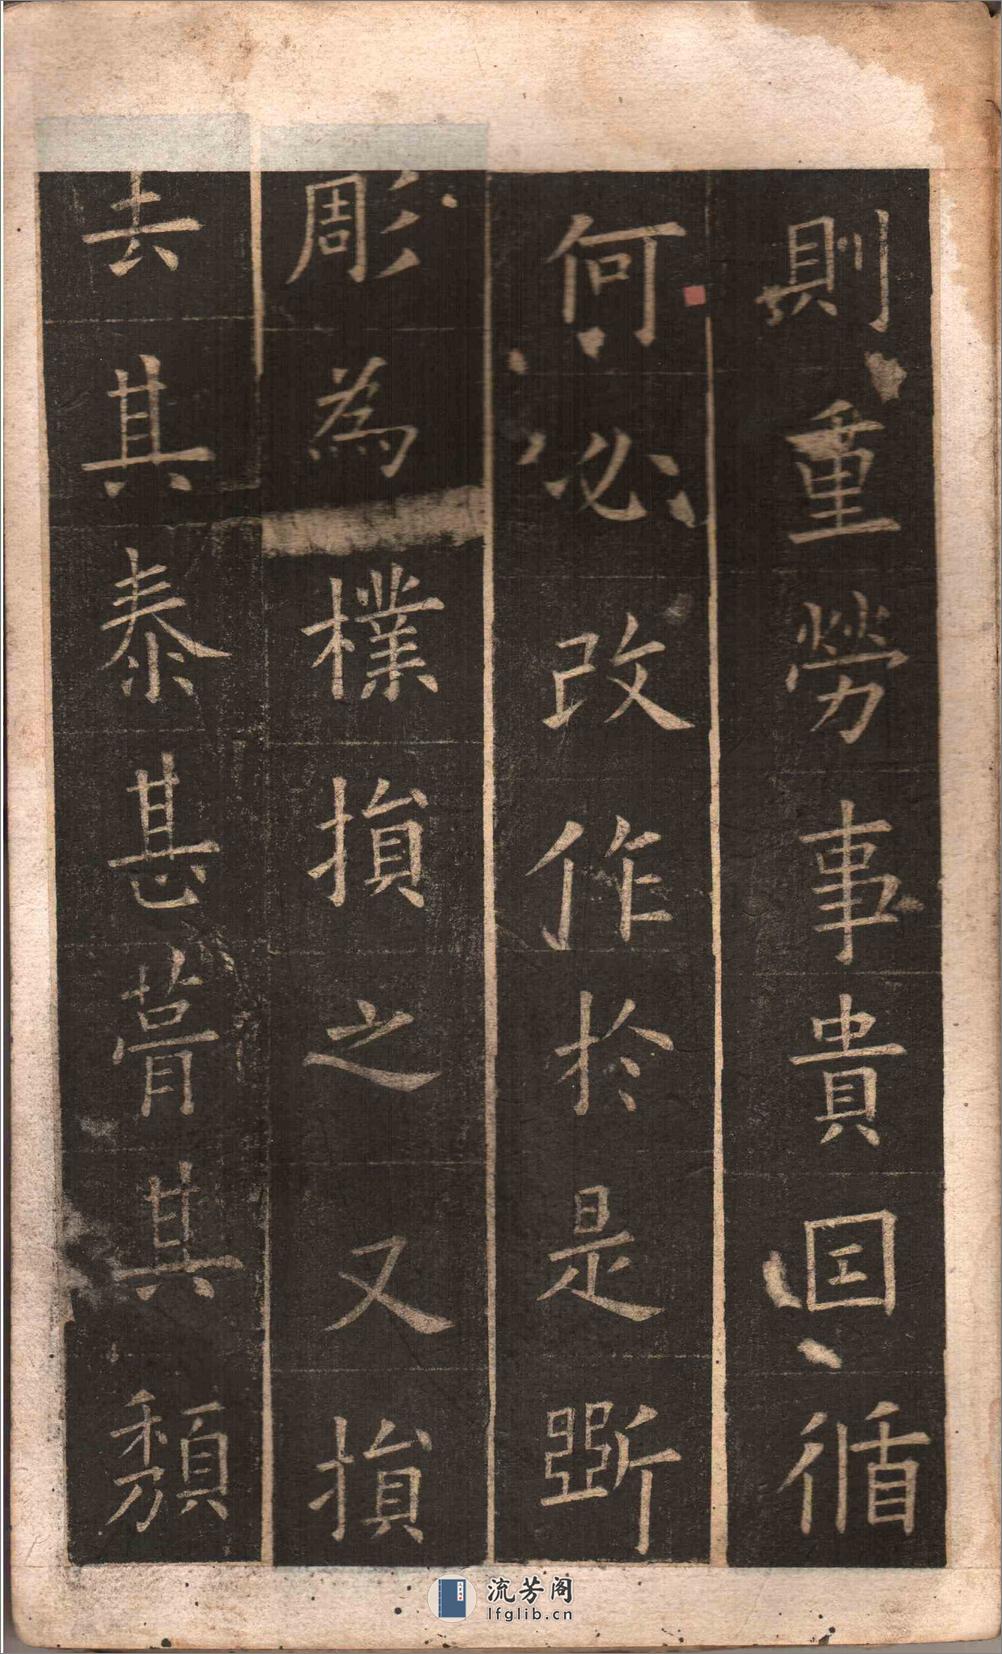 則重勞事貴因循
何必改作於是斲
彫為樸損之又損
去其泰甚葺其頽
流芳阁
lfglib.cn